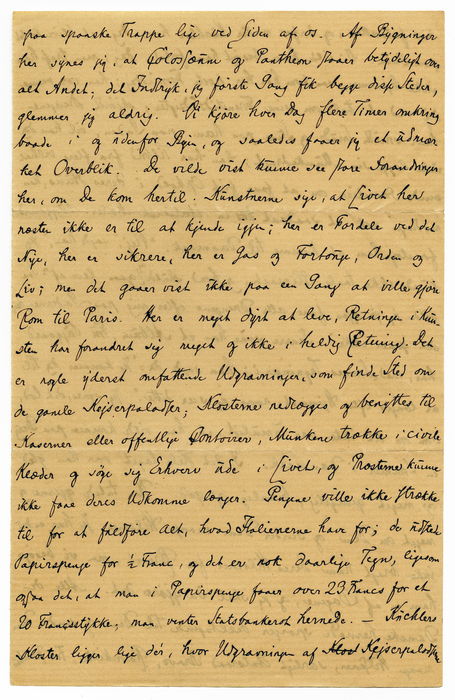 paa spanske Trappe lige ved Siden af os. Af Bygninger
her synes jeg, at Colosæum og Pantheon staaer betydeligt over
alt Andet; det Indtryk, jeg første Gang fik begge disse Steder,
glemmer jeg aldrig. Vi kjøre hver Dag flere Timer omkring
baade i og udenfor Byen, og saaledes faaer jeg et udmær
ket Overblik. De vilde vist kunne see store Forandringer
her, om De kom hertil. Kunstnerne sige, at Livet her
næsten ikke er til at kjende igjen; her er Fordele ved det
Nye, her er sikrere, her er Gas og Fortouge, Orden og
Liv; men det gaaer vist ikke paa een Gang at ville gjøre
Rom til Paris. Her er meget dyrt at leve, Retningen i Kun-
sten har forandret sig meget og ikke i heldig Retning. Det
er nogle yderst omfattende Udgravninger, som finde Sted om
de gamle Kejserpaladser; Klosterne nedlægges og benyttes til
Kaserner eller offentlige Contoirer, Munkene trække i civile
Klæder og søge sig Erhverv ude i Livet, og Præsterne kunne
ikke faae deres Udkomme længer. Pengene ville ikke strække
til for at fuldføre alt, hvad Italienerne have for; de udsted
Papirspenge for ½ Franc, og det er nok daarlige Tegn, ligesom
ogsaa det, at man i Papirspenge faaer over 23 Francs for et
20 Francsstykke; man venter Statsbankerot hernede. — Küchlers
Kloster ligger lige der, hvor Udgravningen af Kejserpaladserne